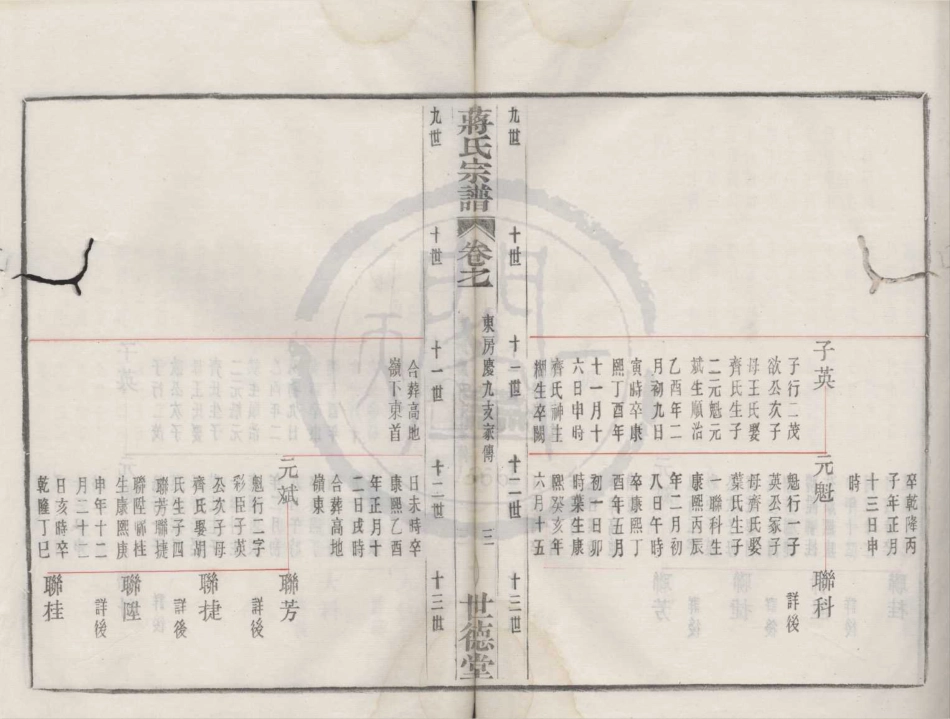 子英
子行二茂
欲公次子
母王氏娶
齊氏生子
二元魁元
斌生順治
乙酉年二
月初九日
寅時卒康
熙丁酉年
十一月十
六日申時
齊氏神主
生卒闕
卒乾隆丙
子年正月
十三日申
時
元魁
魁行一子
英公冢子
母齊氏娶
葉氏生子
一聯科生
康熙丙辰
年二月初
八日午時
卒康熙丁
酉年五月
初一日卯
時葉生康
熙癸亥年
六月十五
聯科
詳後
九世
十世
十一世
十二世
十三世
蔣氏宗譜
卷之
東房慶九支家傳
三
世德堂
九世
十世
十一世
十二世
十三世
合葬高地
嶺下東首
日未時卒
康熙乙酉
年正月十
二日戌時
合葬高地
嶺東
元斌
魁行二字
彩臣子英
公次子母
齊氏娶胡
氏生子四
聯芳聯捷
聯陞聯桂
生康熙庚
申年十二
月二十二
日亥時卒
乾隆丁巳
聯芳
詳後
聯捷
詳後
聯陞
詳後
聯桂